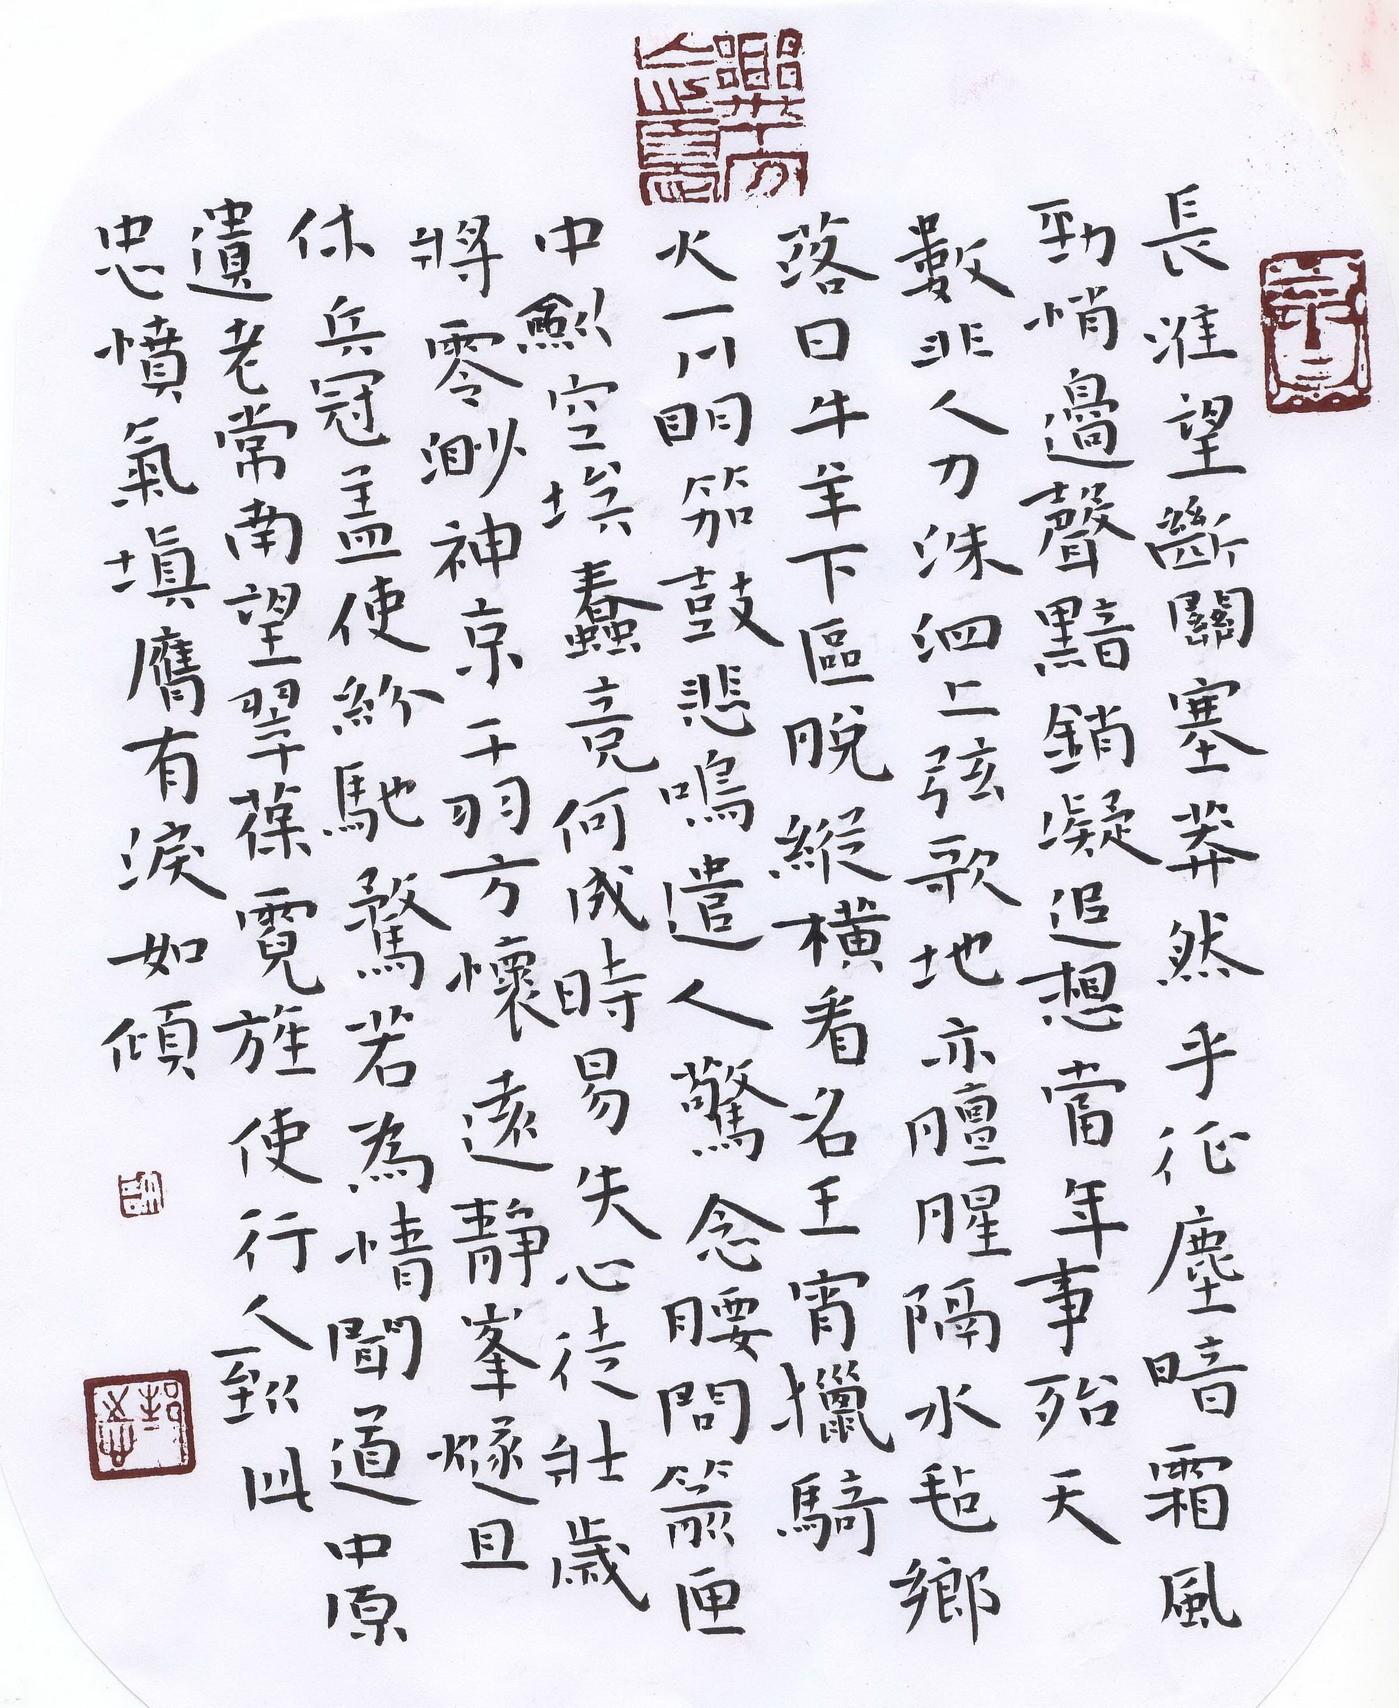 長淮望斷關塞莽然平征塵暗霜風
勁悄邊聲黯銷凝追想當年事殆天
數非人力洙泗上弦歌地亦膻腥隔水毡鄉
落日牛羊下區脫縱橫看名王宵獵騎
火一川明笳鼓悲鳴遣人驚念腰間箭匣
中劍空埃蠹竟何成時易失心徒壯歲
將零渺神京干羽方懷遠靜烽燧且
休兵冠盖使紛馳騖若為情聞道中原
遺老常南望翠葆霓旌使行人到此
忠憤氣填膺有淚如傾